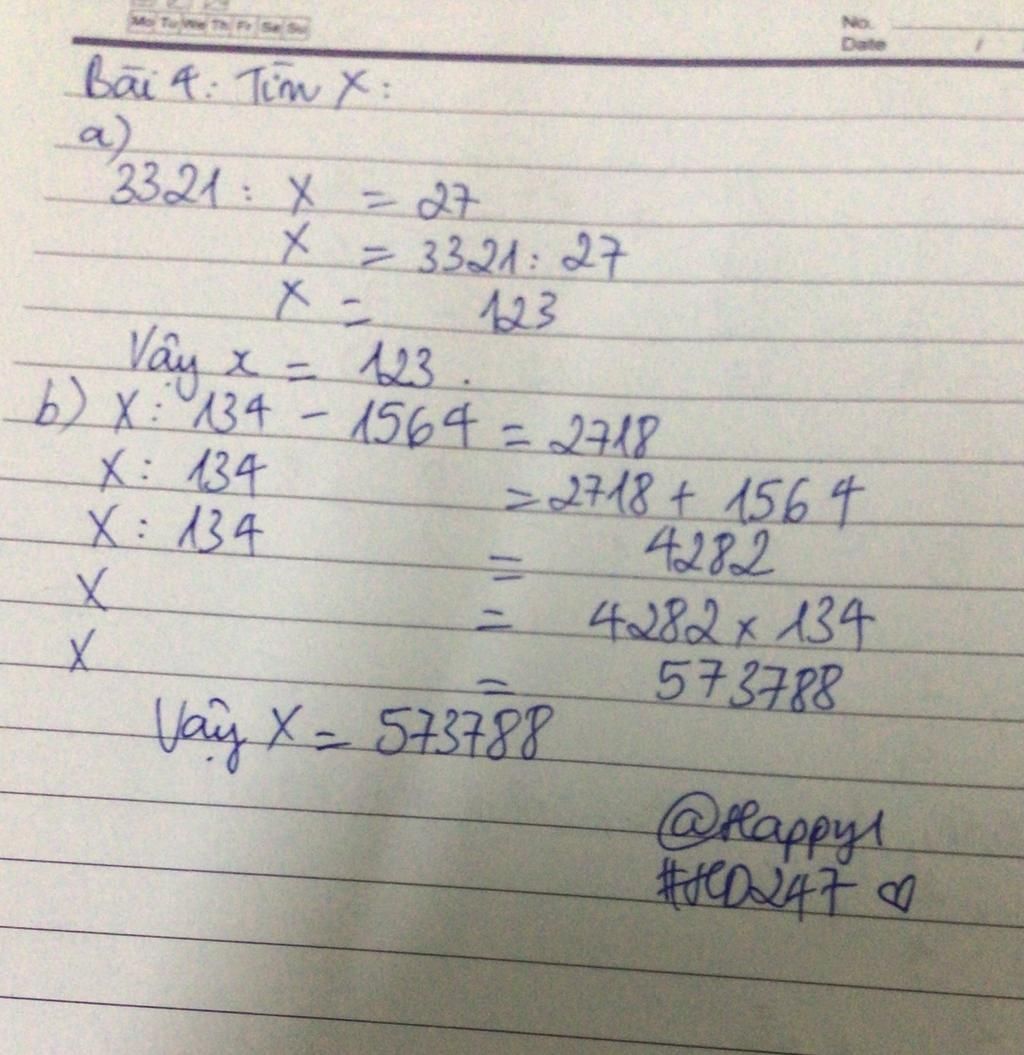 Mo Tu We Th Fr Sa Su
No.
Date /
Bài 4: Tìm X:
a)
3321 : X = 27
X = 3321 : 27
X = 123
Vậy x = 123.
b) X : 134 - 1564 = 2718
X : 134 = 2718 + 1564
X : 134 = 4282
X = 4282 x 134
X = 573788
Vậy X = 573788
@Happy1
#HD247 ♡